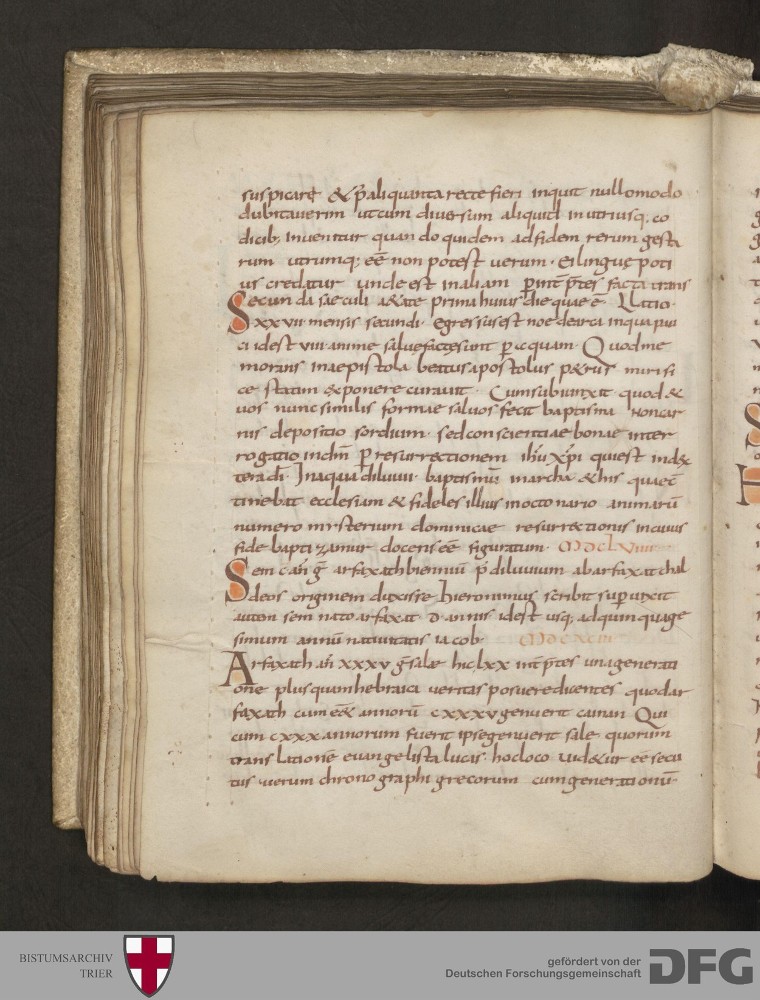 suspicarer & p̄ aliquanta recte fieri inquit nullo modo
dubitaverim ut cum diversum aliquid in utriusq; co
dicib; invenitur quan do quidem ad fidem rerum gesta
rum utrumq; eē non potest verum. ei linguę poti
us credatur unde est in aliam p̄ int̄p̄tes facta trans
Secunda saeculi aetate prima huius die quae ē. Llatio.
xxvii mensis secundi. egressus est noe de arca in qua pau
ci id est viii anime salvę factę sunt p̄ acquam. Quod me
morans in aepistola beatus apostolus p&rus mirifi
ce statim exponere curavit. Cum subiunxit quod &
vos nunc similis formae salvos fecit baptisma Non car
nis depositio sordium. sed conscientiae bonae inter
rogatio in dm̄ p̄ resurrectionem ihū xp̄i qui est in dex
tera dī. In aqua diluvii. baptismū in archa & his quae c̄
tinebat ecclesiam & fideles illius in octonario animarū
numero mysterium dominicae resurrectionis in cuius
fide baptizamur docens eē figuratum. MDCLVIIII
Sem c an̄ ḡ arfaxath biennīū p̄ diluvium ab arfaxat chal
deos originem duxisse hieronimus scribit sup̄ vixit
autem sem nato arfaxat d annis id est usq; ad quinquage
simum annū nativitatis iacob. MDCXCIII
Arfaxath an̄ xxxv ḡ sale hic lxx int̄p̄tes una generati
one plus quam hebraica veritas posuere dicentes quod ar
faxath cum ee& annorū cxxxv genuerit cainan Qui
cum cxxx annorum fuerit ipse genuerit sale quorum
translationē euangelista lucas. hoc loco uid&ur eē secu
tus. verum chronographi grecorum cum generationū.
BISTUMSARCHIV
TRIER
gefördert von der
Deutschen Forschungsgemeinschaft
DFG